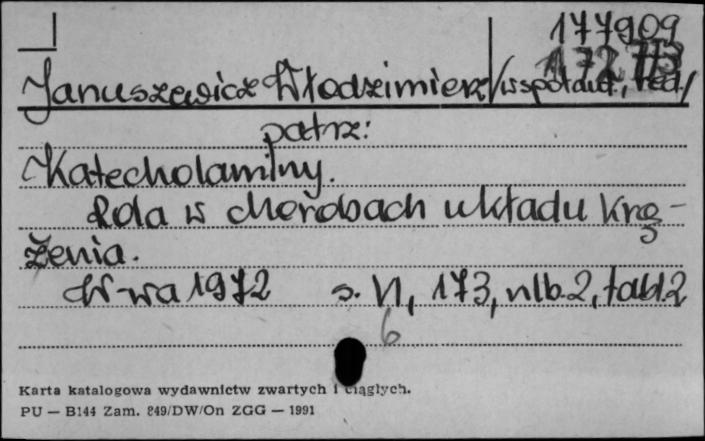 177909
Januszewicz Włodzimierz /współaut., red./
patrz:
Katecholaminy.
Rola w chorobach układu krą-
żenia.
W-wa 1972 s. VI, 173, nlb. 2, tabl. 2
6
Karta katalogowa wydawnictw zwartych i ciągłych.
PU — B144 Zam. 849/DW/On ZGG — 1991